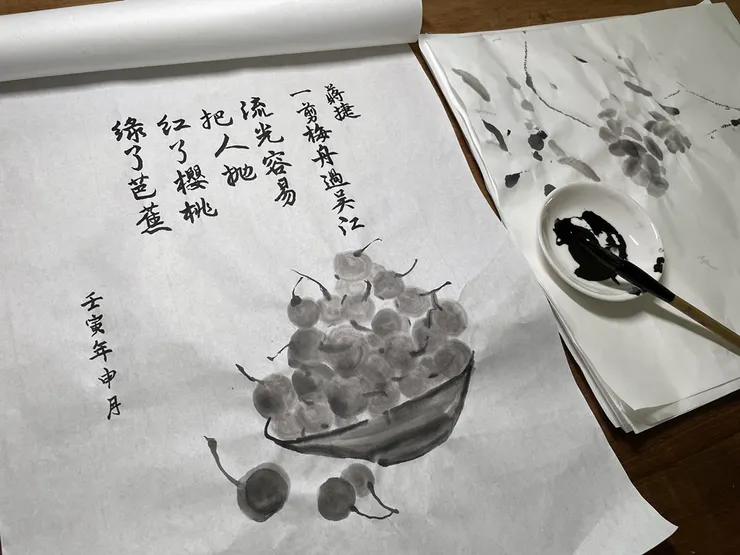 蔣捷
一剪梅舟過吴江
流光容易
把人抛
红了櫻桃
綠了芭蕉
壬寅年申月